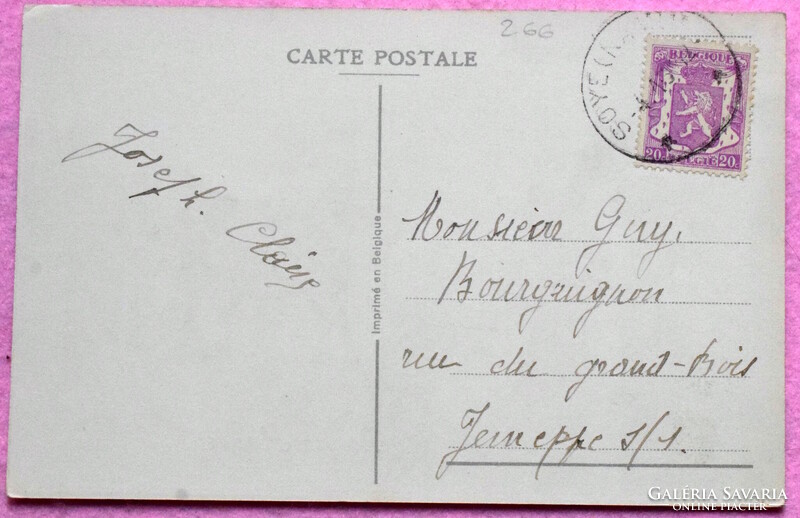 266
CARTE POSTALE
SOYE (NAMUR)
BELGIQUE
20. BELGIE 20.
Joseph. Claeys
Imprimé en Belgique
Monsieur Guy.
Bourguignon
rue du grand-Bois
Jemeppe s/s.
GALÉRIA SAVARIA
ONLINE PIACTÉR